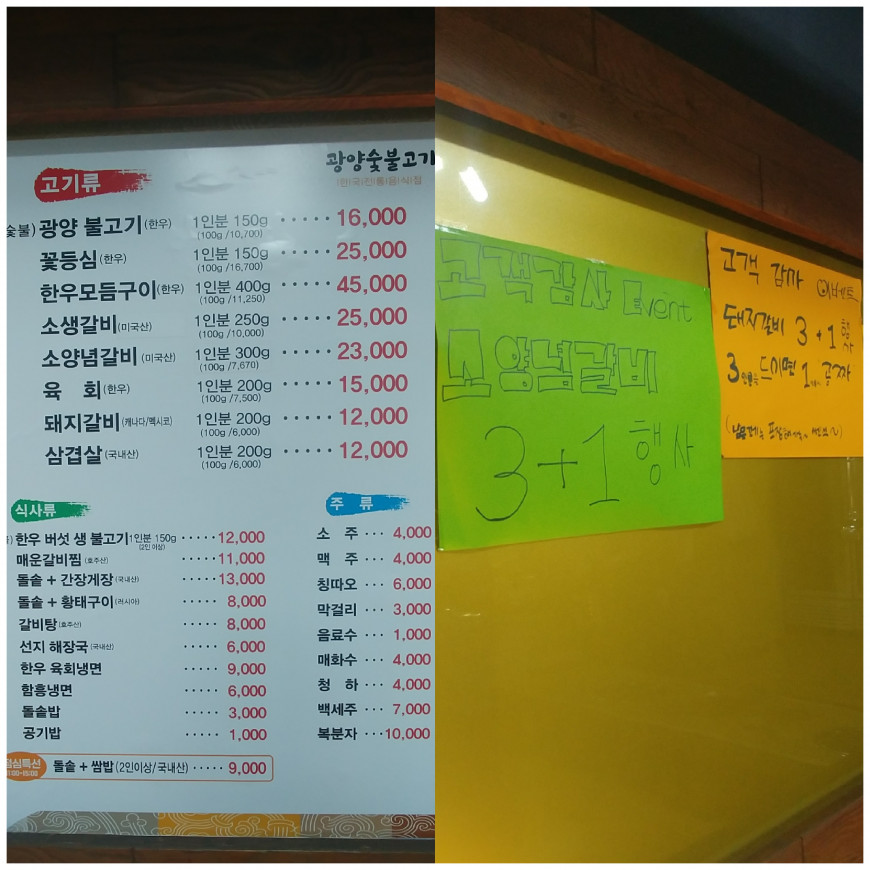 광양숯불고기
한국전통음식점
고기류
숯불) 광양 불고기 (한우) 1인분 150g ····· 16,000
(100g /10,700)
꽃등심 (한우) 1인분 150g ····· 25,000
(100g /16,700)
한우모듬구이 (한우) 1인분 400g ····· 45,000
(100g /11,250)
소생갈비 (미국산) 1인분 250g ····· 25,000
(100g /10,000)
소양념갈비 (미국산) 1인분 300g ····· 23,000
(100g /7,670)
육 회 (한우) 1인분 200g ····· 15,000
(100g /7,500)
돼지갈비 (캐나다/멕시코) 1인분 200g ····· 12,000
(100g /6,000)
삼겹살 (국내산) 1인분 200g ····· 12,000
(100g /6,000)
식사류
한우 버섯 생 불고기 1인분 150g ····· 12,000
(2인 이상)
매운갈비찜 (호주산) ····· 11,000
돌솥 + 간장게장 (국내산) ····· 13,000
돌솥 + 황태구이 (러시아) ····· 8,000
갈비탕 (호주산) ····· 8,000
선지 해장국 (국내산) ····· 6,000
한우 육회냉면 ····· 9,000
함흥냉면 ····· 6,000
돌솥밥 ····· 3,000
공기밥 ····· 1,000
점심특선
돌솥 + 쌈밥 (2인이상/국내산) ····· 9,000
주 류
소 주 ··· 4,000
맥 주 ··· 4,000
칭따오 ··· 6,000
막걸리 ··· 3,000
음료수 ··· 1,000
매화수 ··· 4,000
청 하 ··· 4,000
백세주 ··· 7,000
복분자 ··· 10,000
고객감사 Event
소양념갈비
3+1 행사
고객 감사 이벤트
돼지갈비 3+1 행사
3인분 드시면 1인분 공짜